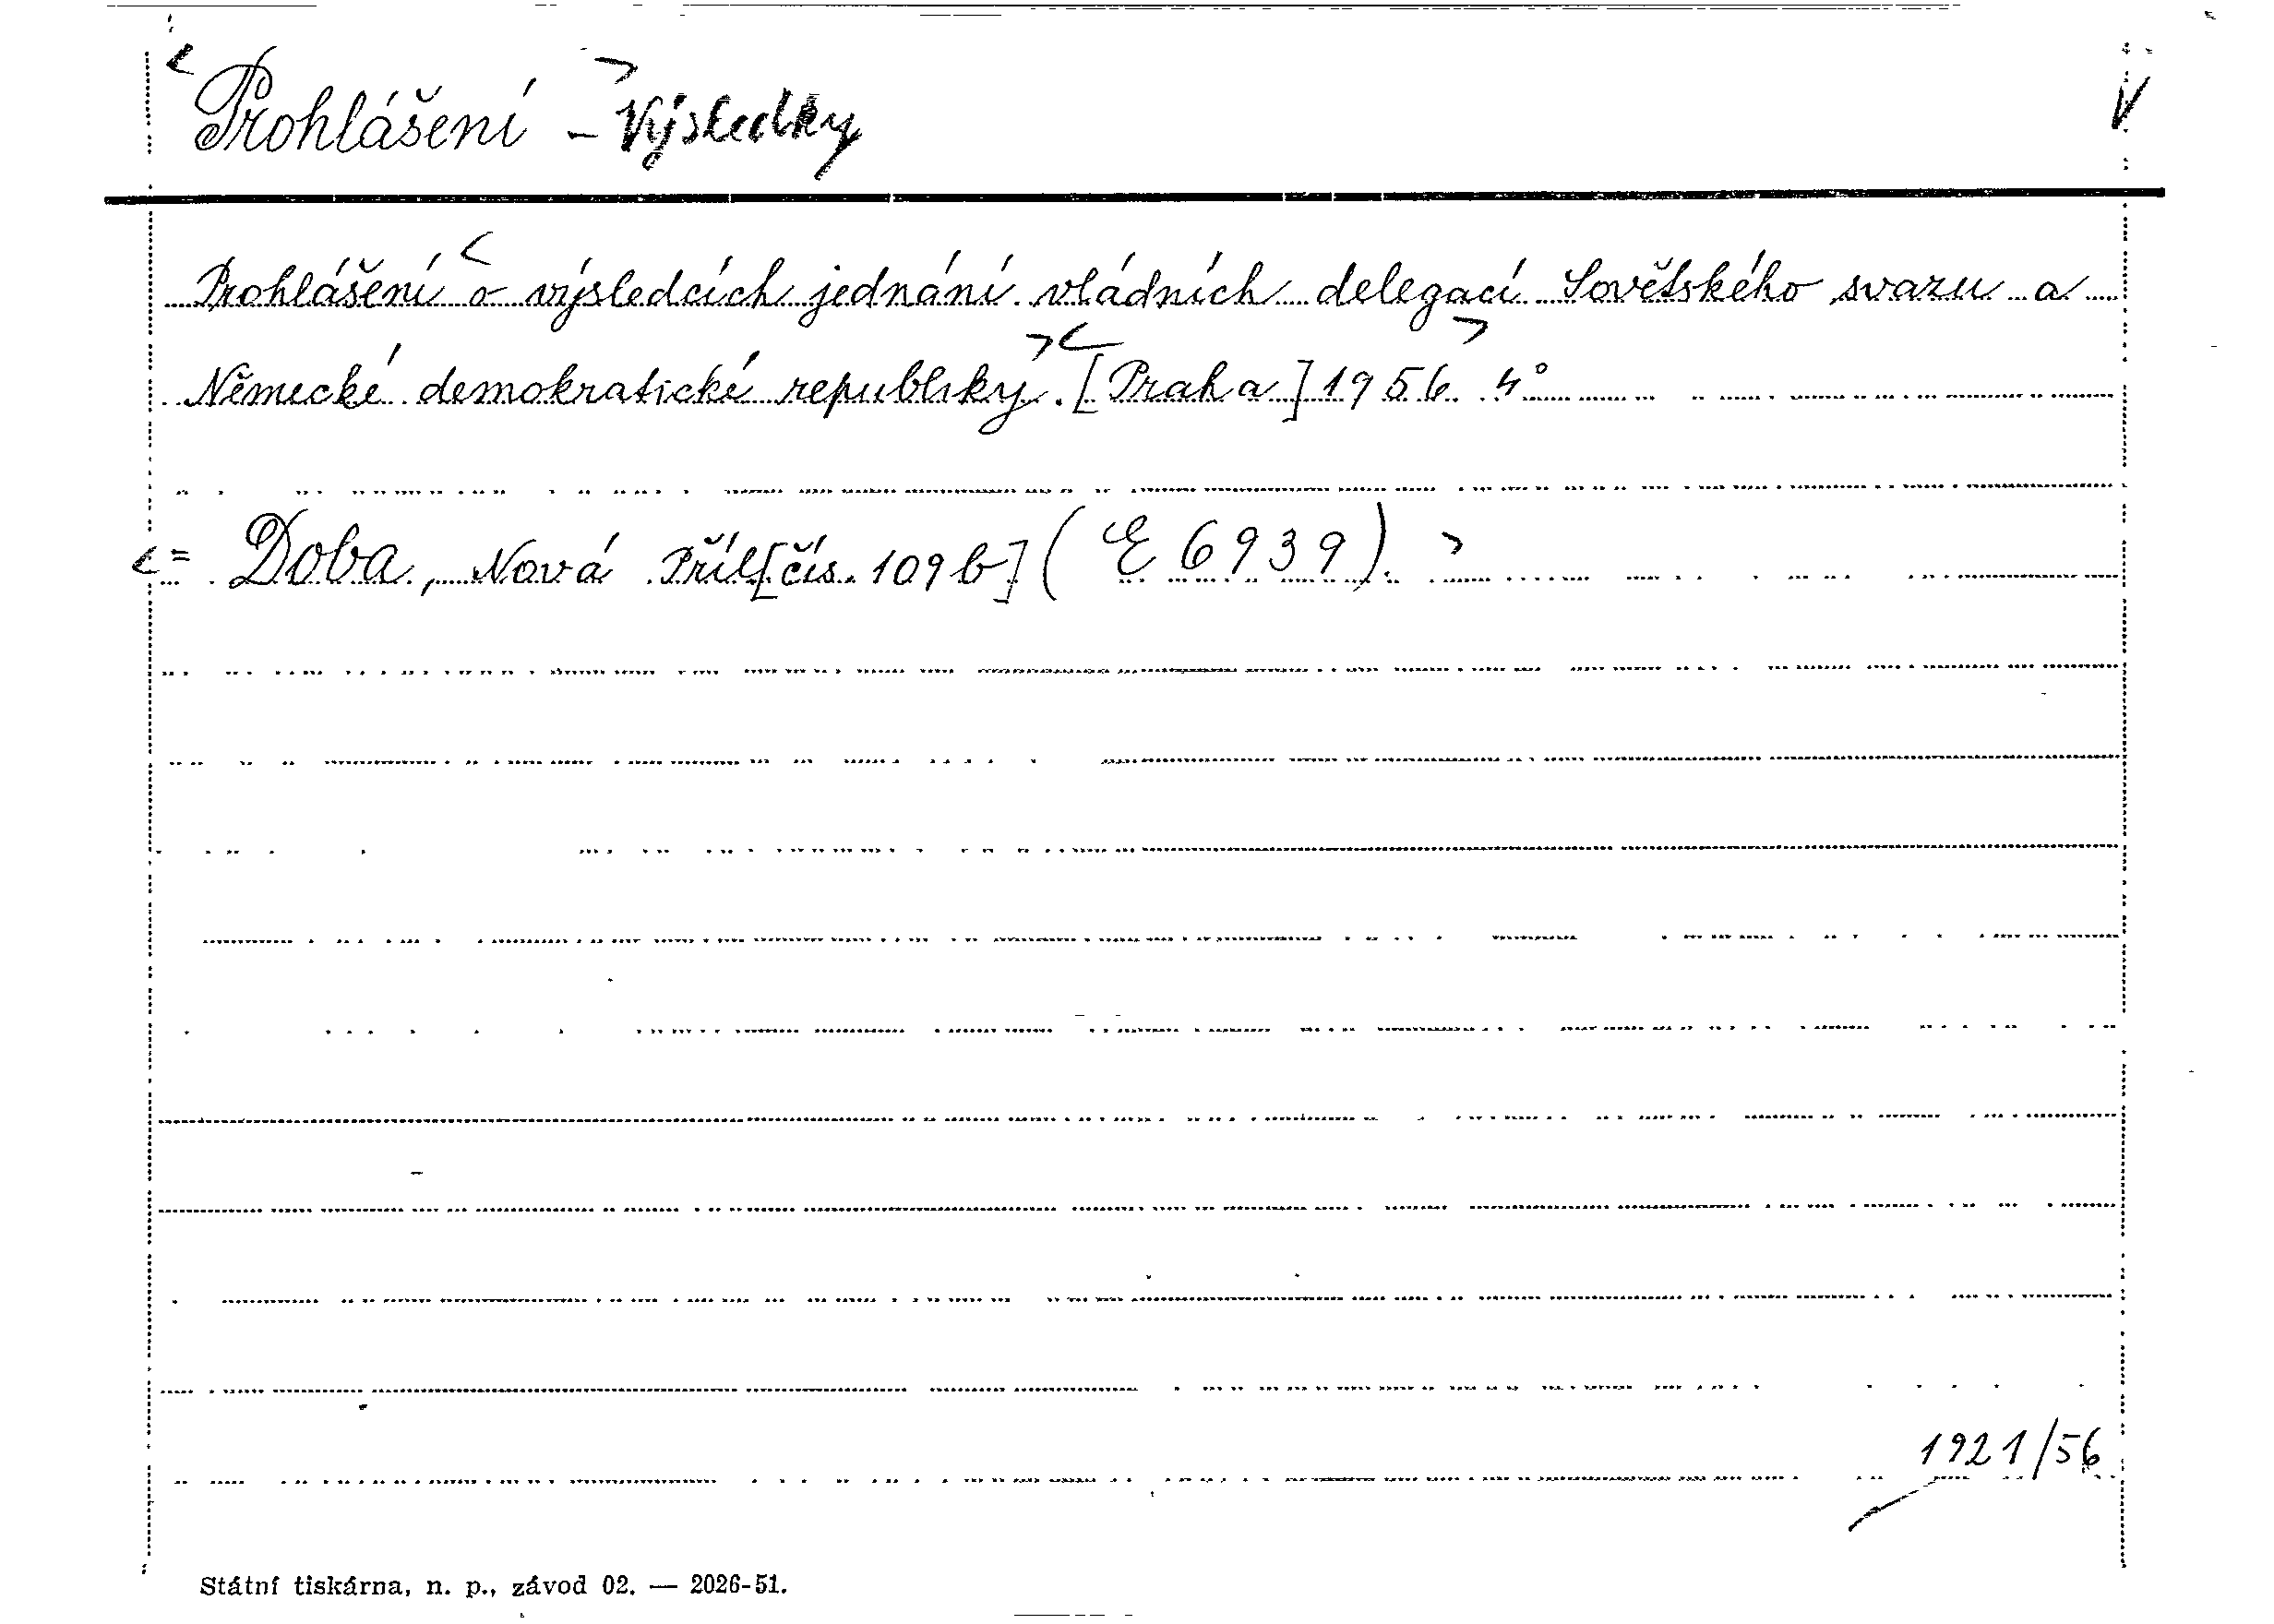 < Prohlášení > - Výsledky V
Prohlášení < o výsledcích jednání vládních delegací Sovětského svazu a
Německé demokratické republiky. >< [Praha] 1956. > 4°
< = Doba, Nová Příl[čís. 109b] (E 6939). >
1921/56
Státní tiskárna, n. p., závod 02. — 2026-51.